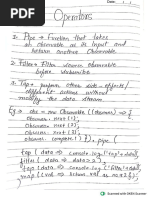 Date: 1
Operators
1. Pipe → Function that takes
an Observable as its Input and
Return another Observable
2. Filter → Filter values Observable
before Subscribe
3. Tap → perform other side-effects/
different actions without
modify the data stream
Eg → obs = new Observable((observer) => {
observer.next(1);
observer.next(2);
observer.next(3);
observer.complete(); }).pipe(
tap(data => console.log('tap'+data)),
filter(data => data > 2),
tap(val => console.log('filter'+val)),
Scanned with OKEN Scanner